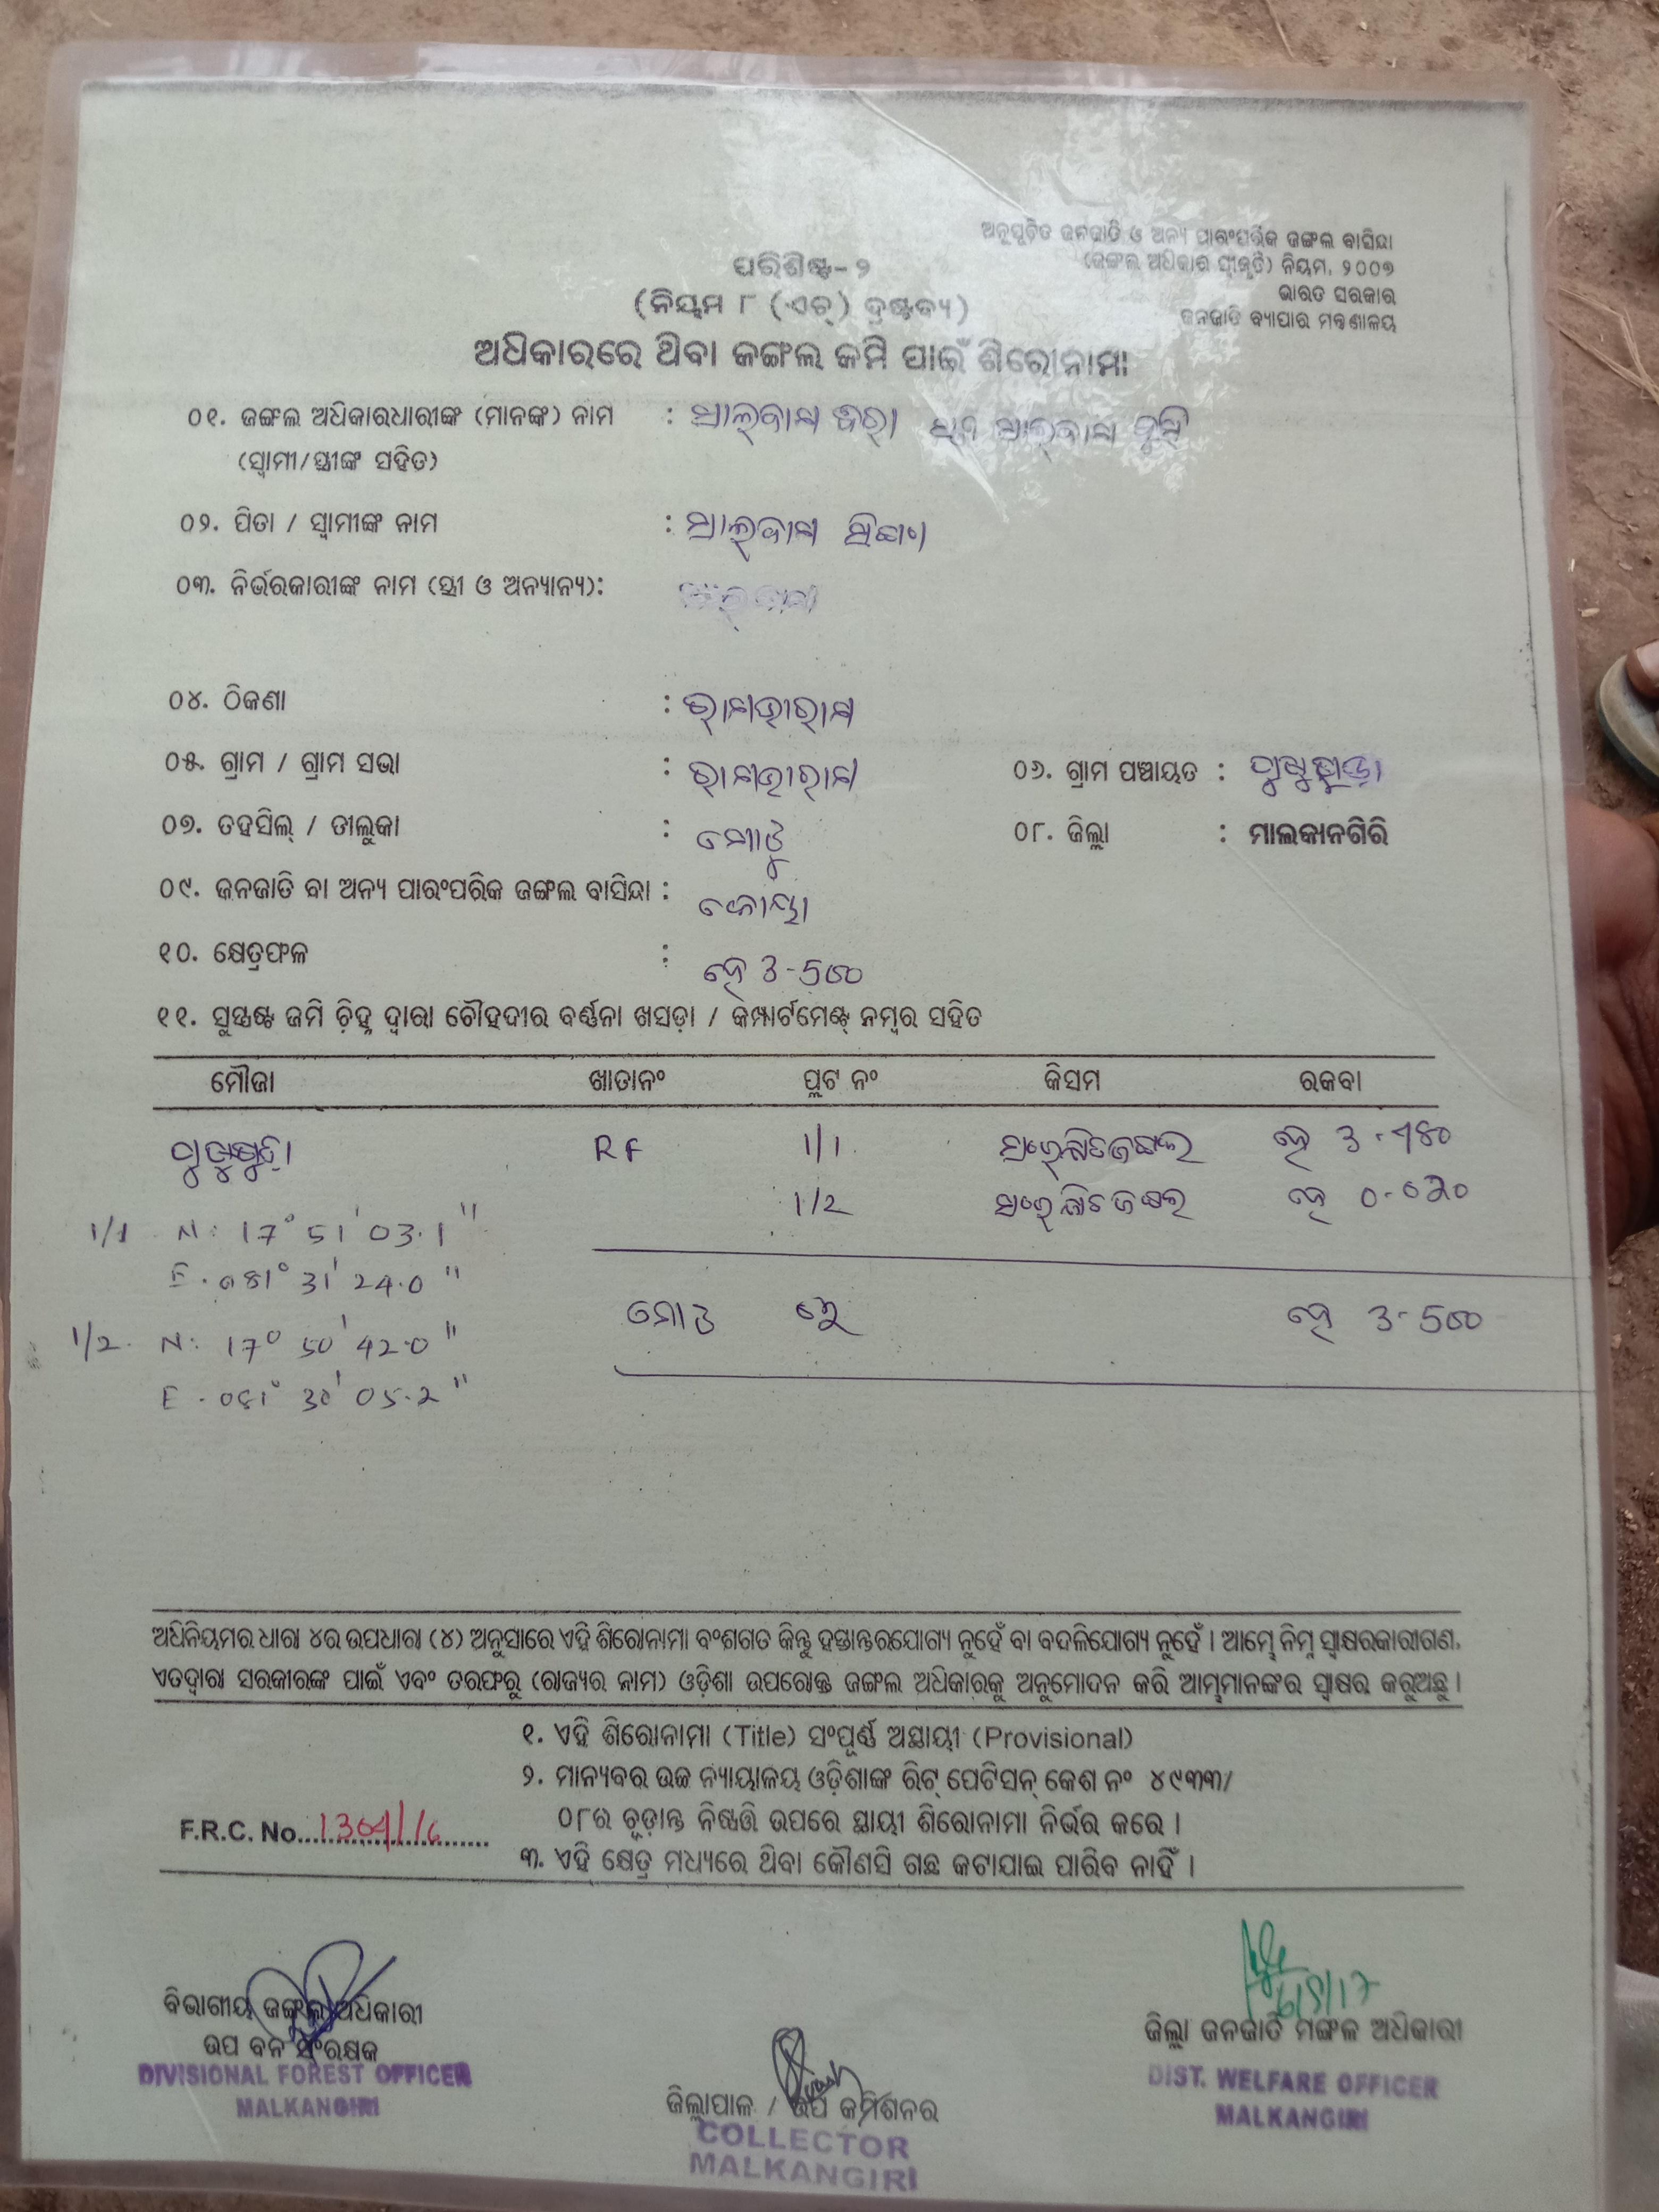 ଅନୁସୂଚିତ ଜନଜାତି ଓ ଅନ୍ୟ ପାରଂପରିକ ଜଙ୍ଗଲ ବାସିନ୍ଦା
(ଜଙ୍ଗଲ ଅଧିକାର ସ୍ୱୀକୃତି) ନିୟମ, ୨୦୦୭
ଭାରତ ସରକାର
ଜନଜାତି ବ୍ୟାପାର ମନ୍ତ୍ରଣାଳୟ
ପରିଶିଷ୍ଟ-୨
(ନିୟମ ୮ (ଏଚ୍) ଦ୍ରଷ୍ଟବ୍ୟ)
ଅଧିକାରରେ ଥିବା ଜଙ୍ଗଲ ଜମି ପାଇଁ ଶିରୋନାମା
୦୧. ଜଙ୍ଗଲ ଅଧିକାରଧାରୀଙ୍କ (ମାନଙ୍କ) ନାମ :
(ସ୍ୱାମୀ/ସ୍ତ୍ରୀଙ୍କ ସହିତ)
୦୨. ପିତା / ସ୍ୱାମୀଙ୍କ ନାମ :
୦୩. ନିର୍ଭରକାରୀଙ୍କ ନାମ (ସ୍ତ୍ରୀ ଓ ଅନ୍ୟାନ୍ୟ):
୦୪. ଠିକଣା :
୦୫. ଗ୍ରାମ / ଗ୍ରାମ ସଭା : ୦୬. ଗ୍ରାମ ପଞ୍ଚାୟତ :
୦୭. ତହସିଲ୍ / ତାଲୁକା : ମୋଟୁ ୦୮. ଜିଲ୍ଲା : ମାଲକାନଗିରି
୦୯. ଜନଜାତି ବା ଅନ୍ୟ ପାରଂପରିକ ଜଙ୍ଗଲ ବାସିନ୍ଦା : କୋୟା
୧୦. କ୍ଷେତ୍ରଫଳ : ହେ 3-500
୧୧. ସୁସ୍ପଷ୍ଟ ଜମି ଚିହ୍ନ ଦ୍ୱାରା ଚୌହଦୀର ବର୍ଣ୍ଣନା ଖସଡ଼ା / କମ୍ପାର୍ଟମେଣ୍ଟ୍ ନମ୍ବର ସହିତ
ମୌଜା ଖାତାନଂ ପ୍ଲଟ ନଂ କିସମ ରକବା
RF 1/1 ସଂରକ୍ଷିତ ଜଙ୍ଗଲ ହେ 3-480
1/2 ସଂରକ୍ଷିତ ଜଙ୍ଗଲ ହେ 0-020
1/1 N: 17° 51' 03.1"
E. 081° 31' 24.0"
ମୋଟ ହେ 3-500
1/2. N: 17° 50' 42.0"
E. 081° 30' 05.2"
ଅଧିନିୟମର ଧାରା ୪ର ଉପଧାରା (୪) ଅନୁସାରେ ଏହି ଶିରୋନାମା ବଂଶଗତ କିନ୍ତୁ ହସ୍ତାନ୍ତରଯୋଗ୍ୟ ନୁହେଁ ବା ବଦଳିଯୋଗ୍ୟ ନୁହେଁ । ଆମ୍ଭେ ନିମ୍ନ ସ୍ୱାକ୍ଷରକାରୀଗଣ,
ଏତଦ୍ୱାରା ସରକାରଙ୍କ ପାଇଁ ଏବଂ ତରଫରୁ (ରାଜ୍ୟର ନାମ) ଓଡ଼ିଶା ଉପରୋକ୍ତ ଜଙ୍ଗଲ ଅଧିକାରକୁ ଅନୁମୋଦନ କରି ଆମ୍ଭମାନଙ୍କର ସ୍ୱାକ୍ଷର କରୁଅଛୁ ।
୧. ଏହି ଶିରୋନାମା (Title) ସଂପୂର୍ଣ୍ଣ ଅସ୍ଥାୟୀ (Provisional)
୨. ମାନ୍ୟବର ଉଚ୍ଚ ନ୍ୟାୟାଳୟ ଓଡ଼ିଶାଙ୍କ ରିଟ୍ ପେଟିସନ୍ କେଶ ନଂ ୪୯୩୩/
୦୮ର ଚୂଡ଼ାନ୍ତ ନିଷ୍ପତ୍ତି ଉପରେ ସ୍ଥାୟୀ ଶିରୋନାମା ନିର୍ଭର କରେ ।
F.R.C. No.
୩. ଏହି କ୍ଷେତ୍ର ମଧ୍ୟରେ ଥିବା କୌଣସି ଗଛ କଟାଯାଇ ପାରିବ ନାହିଁ ।
ବିଭାଗୀୟ ଜଙ୍ଗଲ ଅଧିକାରୀ
ଉପ ବନ ସଂରକ୍ଷକ
DIVISIONAL FOREST OFFICER
MALKANGIRI
ଜିଲ୍ଲାପାଳ / ଉପ କମିଶନର
COLLECTOR
MALKANGIRI
ଜିଲ୍ଲା ଜନଜାତି ମଙ୍ଗଳ ଅଧିକାରୀ
DIST. WELFARE OFFICER
MALKANGIRI